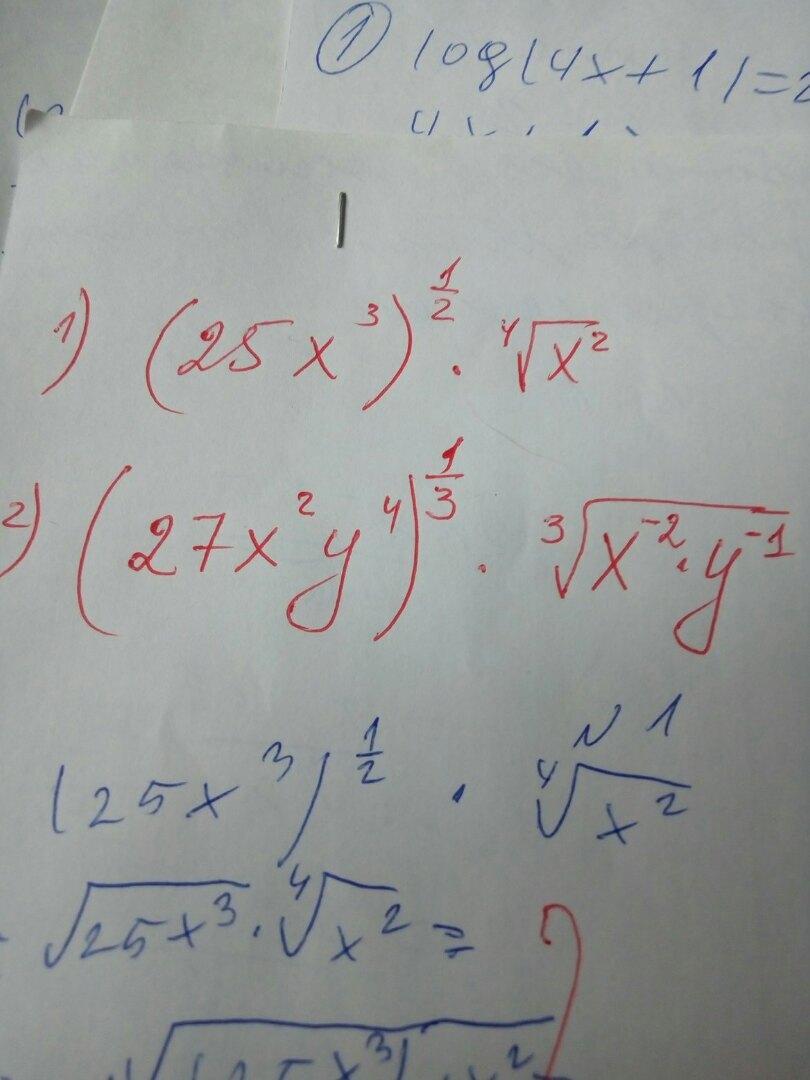 ① log(4x+1)=2
1) (25x³)^½ · ⁴√x²
2) (27x²y⁴)^⅓ · ³√x⁻²·y⁻¹
N 1
(25x³)^½ · ⁴√x²
√25x³ · ⁴√x² = ?